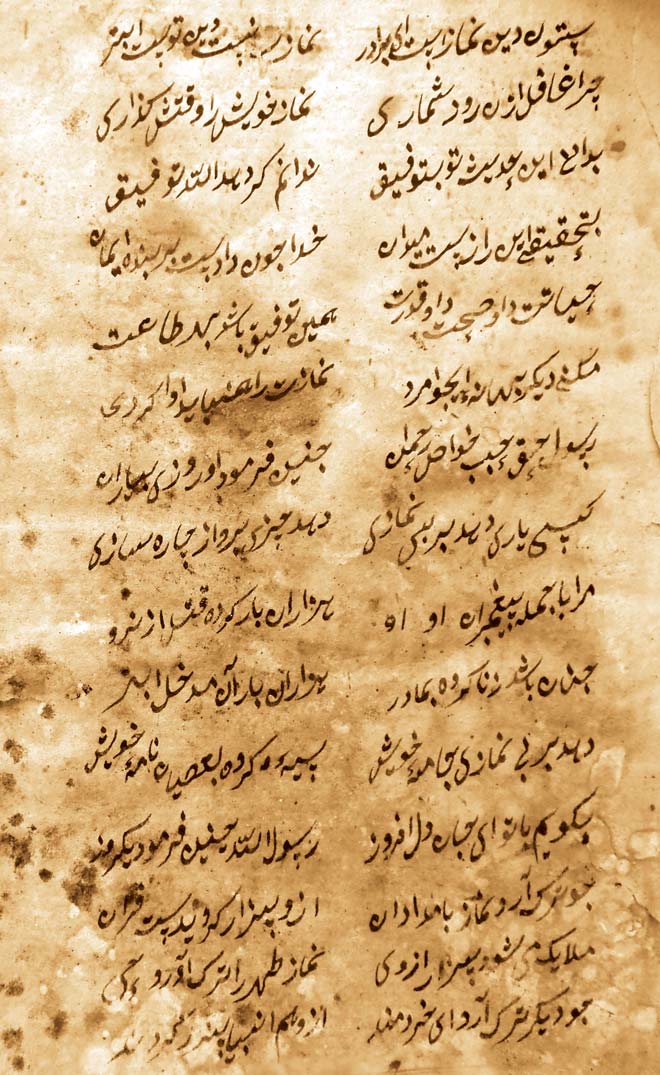 ستون دین نماز است ای برادر نماز نیست دین تو است ابتر
چرا غافل ازن رود شماری نماز خویش را وقتش گذاری
بدانی این حدیث تو بتوفیق ندانم کر دهد الله توفیق
بتحقیق این راز است میدان خدا چون داد است بر بنده ایمان
حیاتت داد صحت داد قدرت همین توفیق باشد بهد طاعت
مکنی دیکر بهانه ایجوامرد نمازت را همیباید ادا کردی
رسول حق حبیب خواص رحمان چنین فرمود او روزی بیاران
کسی یاری دهد بر بی نمازی دهد چیزی برو از چاره سازی
مرا با جمله پیغمبران او هزاران بار کرده قتل از نیرو
چنان باشد زنا کرده بمادر هزاران بار آن مدخل ابتر
دهد بر بی نمازی جامهٔ خویش سیه کرده بعصیان نامهٔ خویش
بگویم با تو ای جان دل افروز رسول الله چنین فرمود یکروز
جو ترک آرد نماز بامدادان ازو بیزار کردید است قران
ملایک می شود بیزار ازوی نماز ظهر را ترک آورد حی
جو دیکر ترک آرد ای خردمند ازو هم انبیا بیزار کردند